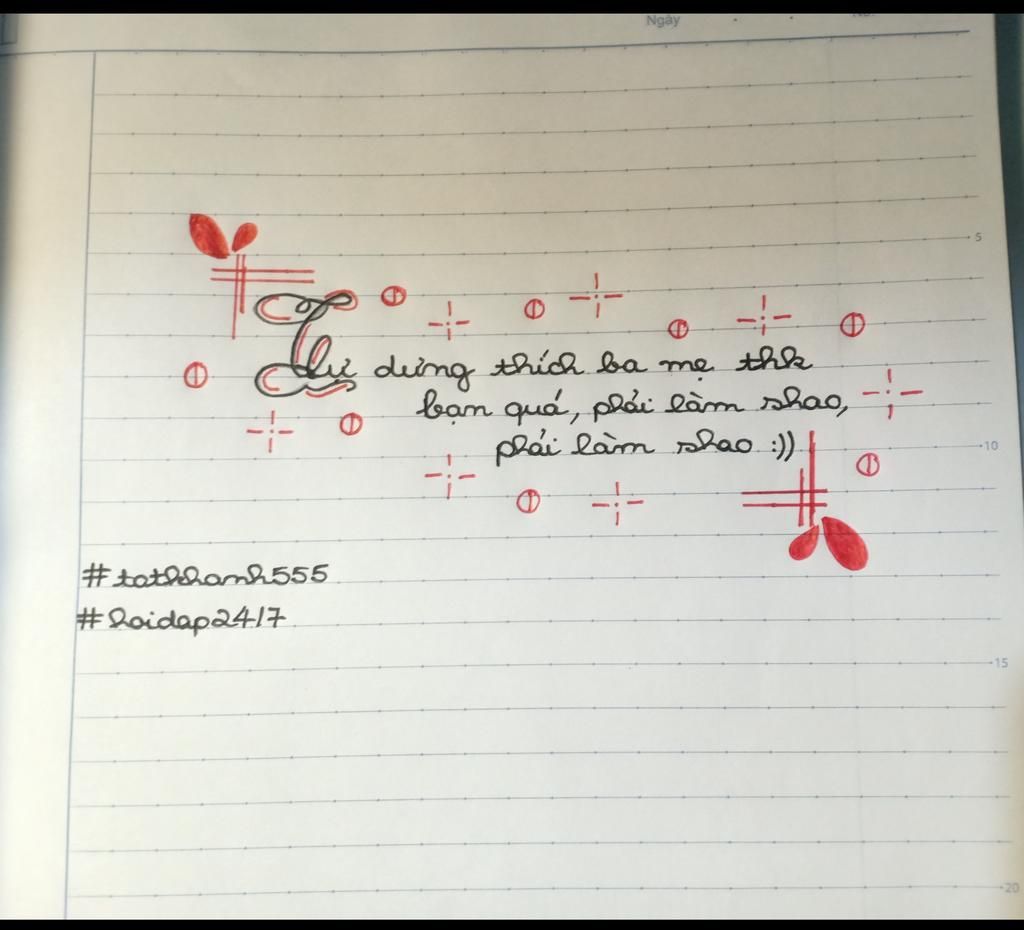 Ngày
5
Tự dưng thích ba mẹ thk
bạn quá, phải làm shao,
phải làm shao :))
10
#tathkhanh555
#hoidap24/7
15
20